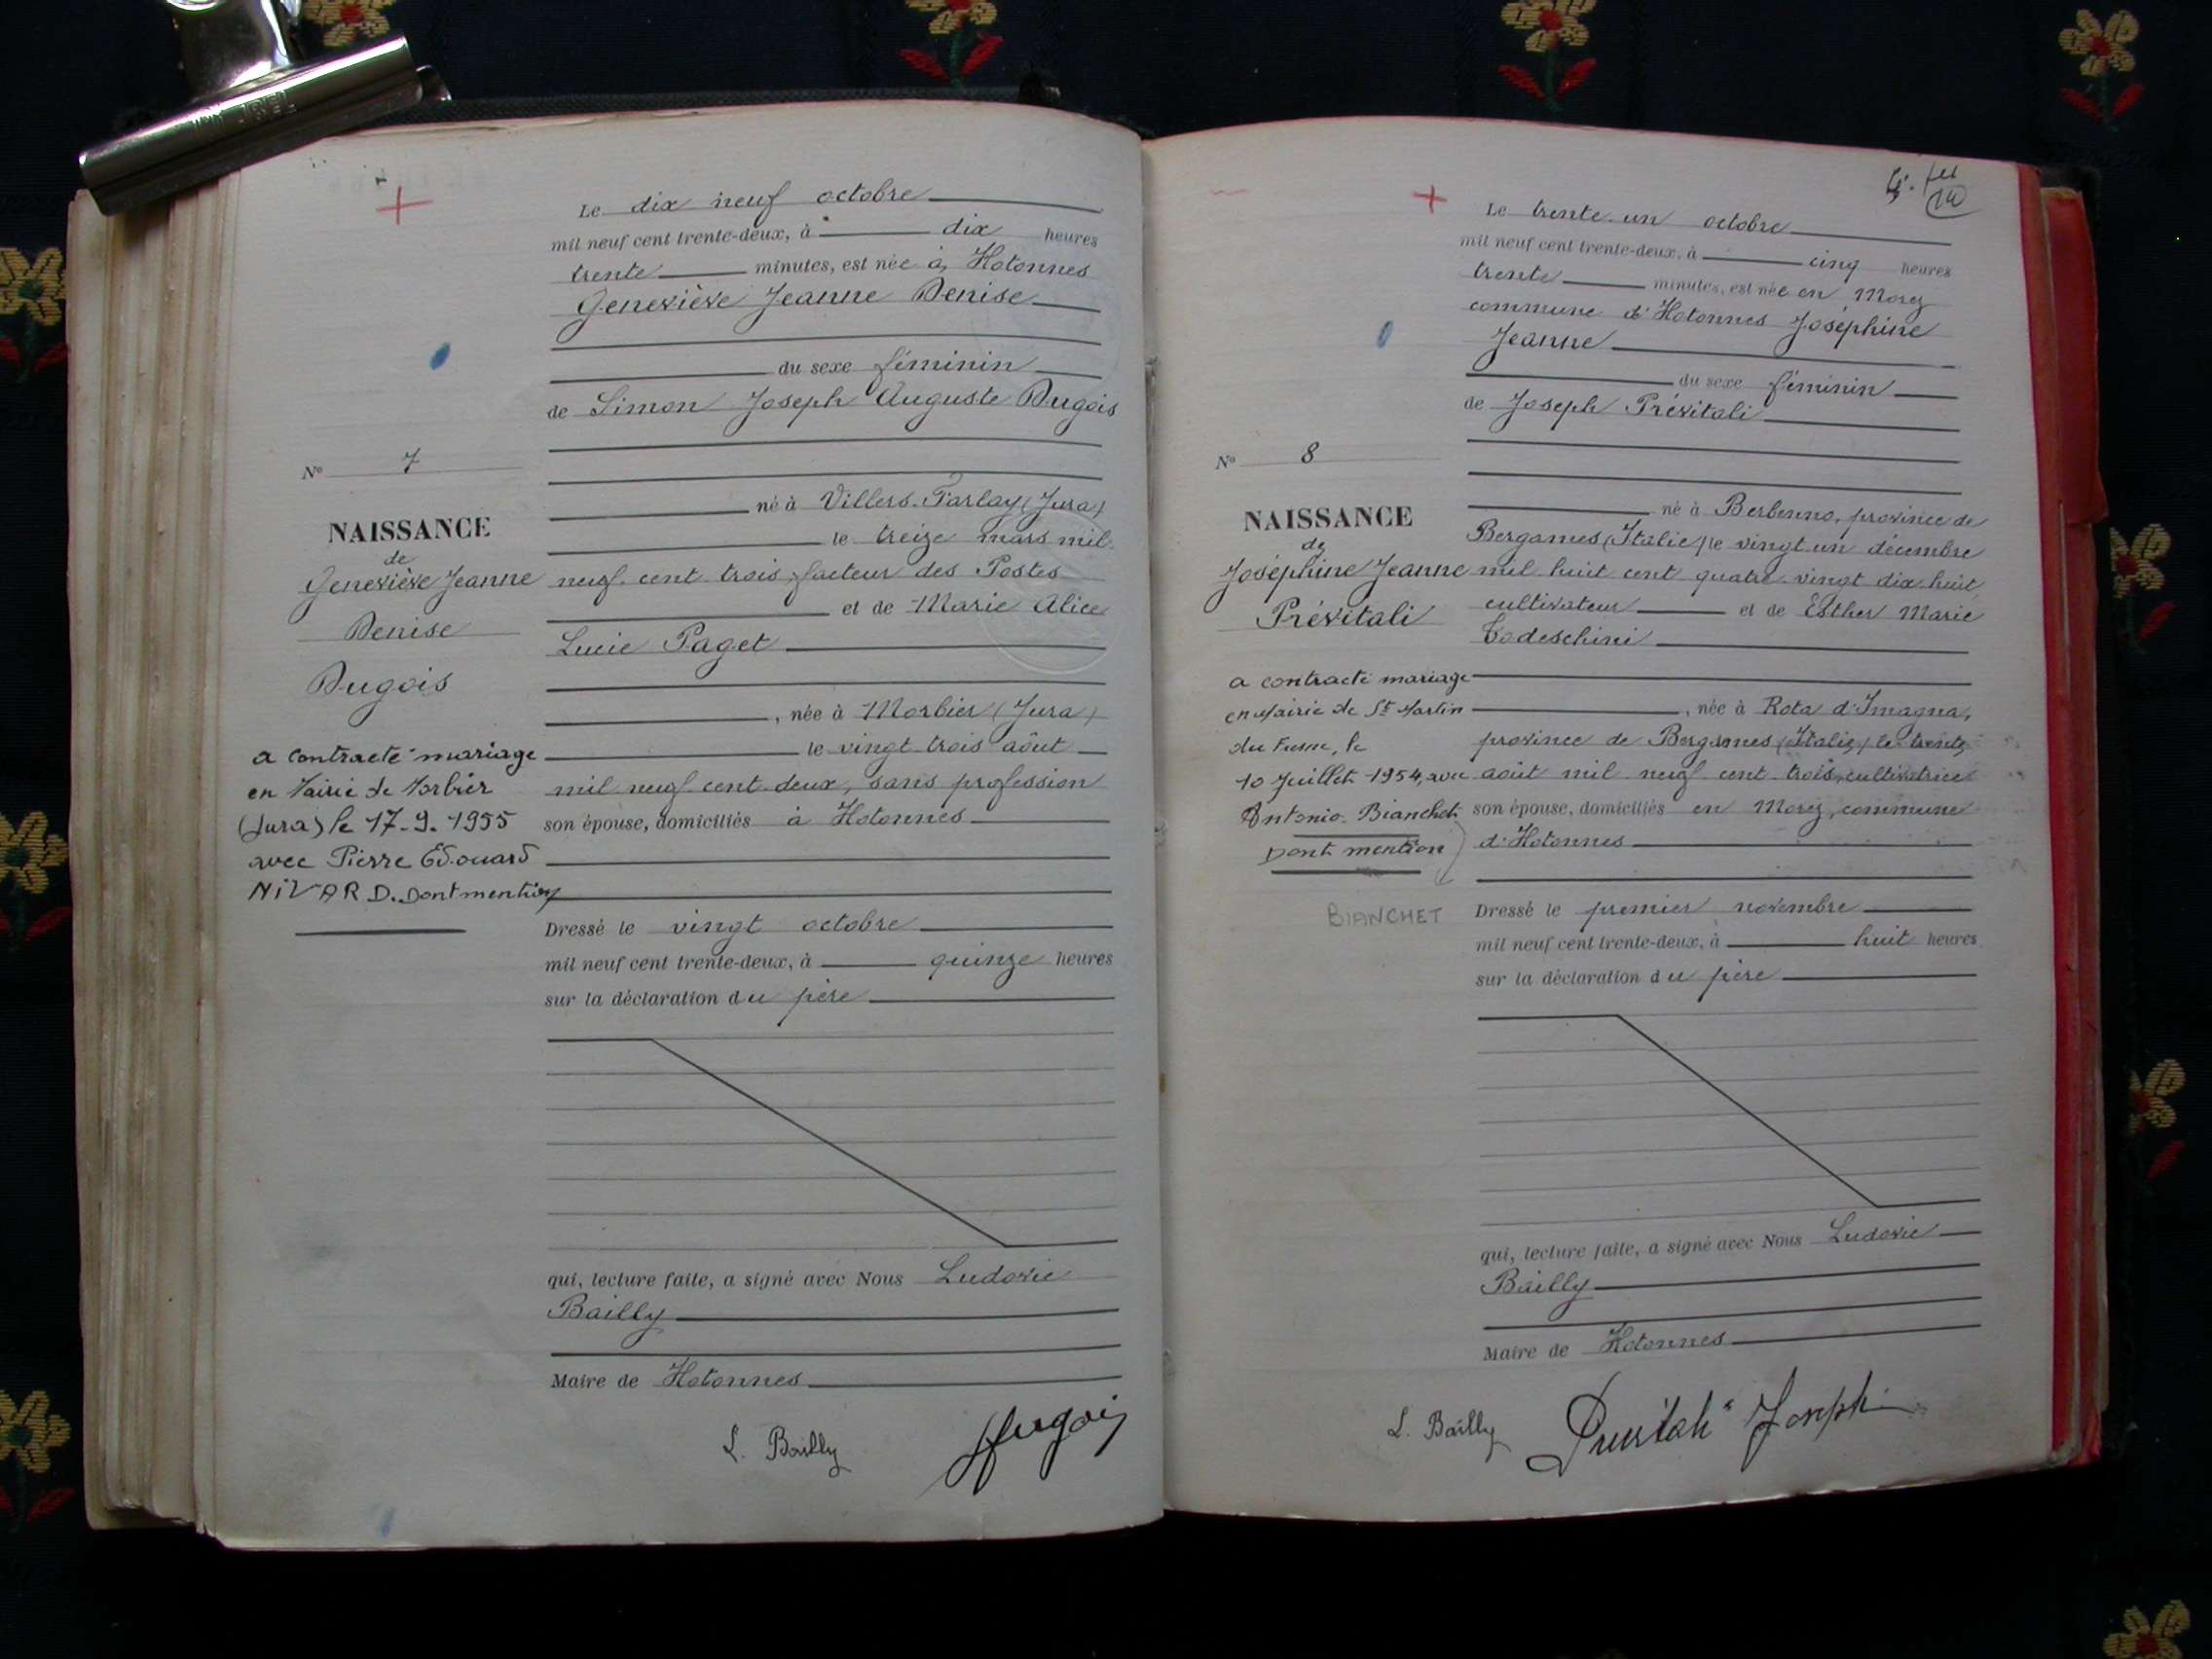 Le dix neuf octobre
mil neuf cent trente-deux, à dix heures
trente minutes, est née à Hotonnes
Geneviève Jeanne Denise
du sexe féminin
de Simon Joseph Auguste Dugois
N° 7
né à Villers-Farlay (Jura)
NAISSANCE
le treize mars mil
de
Geneviève Jeanne
neuf cent trois, facteur des Postes
et de Marie Alice
Denise
Lucie Paget
Dugois
, née à Morbier (Jura)
a contracté mariage
le vingt-trois août
en Mairie de Morbier
mil neuf cent deux, sans profession
(Jura) le 17-9-1955
son épouse, domiciliés à Hotonnes
avec Pierre Edouard
NIVARD. Dont mention
Dressé le vingt octobre
mil neuf cent trente-deux, à quinze heures
sur la déclaration du père
qui, lecture faite, a signé avec Nous Ludovic
Bailly
Maire de Hotonnes
L. Bailly
Dugois
Le trente-un octobre
mil neuf cent trente-deux, à cinq heures
trente minutes, est née en Morez
commune d'Hotonnes Joséphine
Jeanne
du sexe féminin
de Joseph Prévitali
N° 8
né à Berbenno, province de
NAISSANCE
Bergames (Italie) le vingt-un décembre
de
Joséphine Jeanne
mil huit cent quatre-vingt-dix-huit,
Prévitali
cultivateur et de Esther Marie
Todeschini
a contracté mariage
en Mairie de St Martin
, née à Rota d'Imagna,
du Fresne, le
province de Bergames (Italie) le trente
10 Juillet 1954, avec
août mil neuf cent trois, cultivatrice
Antonio Bianchet
son épouse, domiciliés en Morez, commune
Dont mention
d'Hotonnes
BIANCHET
Dressé le premier novembre
mil neuf cent trente-deux, à huit heures
sur la déclaration du père
qui, lecture faite, a signé avec Nous Ludovic
Bailly
Maire de Hotonnes
L. Bailly
Previtali Joseph